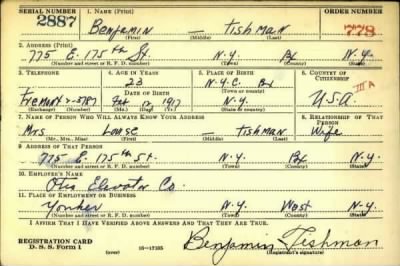 SERIAL NUMBER 1. NAME (Print) ORDER NUMBER
2887 Benjamin — Tishman 778
(First) (Middle) (Last)
2. ADDRESS (Print)
775 E. 175th St. N.Y. Bx N.Y.
(Number and street or R. F. D. number) (Town) (County) (State)
3. TELEPHONE 4. AGE IN YEARS 5. PLACE OF BIRTH 6. COUNTRY OF CITIZENSHIP
23 N.Y.C. Bx III A
DATE OF BIRTH (Town or county)
Tremont 2-5787 1917 N.Y. U.S.A.
(Exchange) (Number) (Mo.) (Day) (Yr.) (State or country)
7. NAME OF PERSON WHO WILL ALWAYS KNOW YOUR ADDRESS 8. RELATIONSHIP OF THAT PERSON
Mrs — Tishman Wife
(Mr., Mrs., Miss) (First) (Middle) (Last)
9. ADDRESS OF THAT PERSON
775 E. 175th St. N.Y. Bx N.Y.
(Number and street or R. F. D. number) (Town) (County) (State)
10. EMPLOYER'S NAME
Otis Elevator Co.
11. PLACE OF EMPLOYMENT OR BUSINESS
Yonkers West N.Y.
(Number and street or R. F. D. number) (Town) (County) (State)
I AFFIRM THAT I HAVE VERIFIED ABOVE ANSWERS AND THAT THEY ARE TRUE.
REGISTRATION CARD Benjamin Tishman
D. S. S. Form 1 (over) 16—17105 (Registrant's signature)